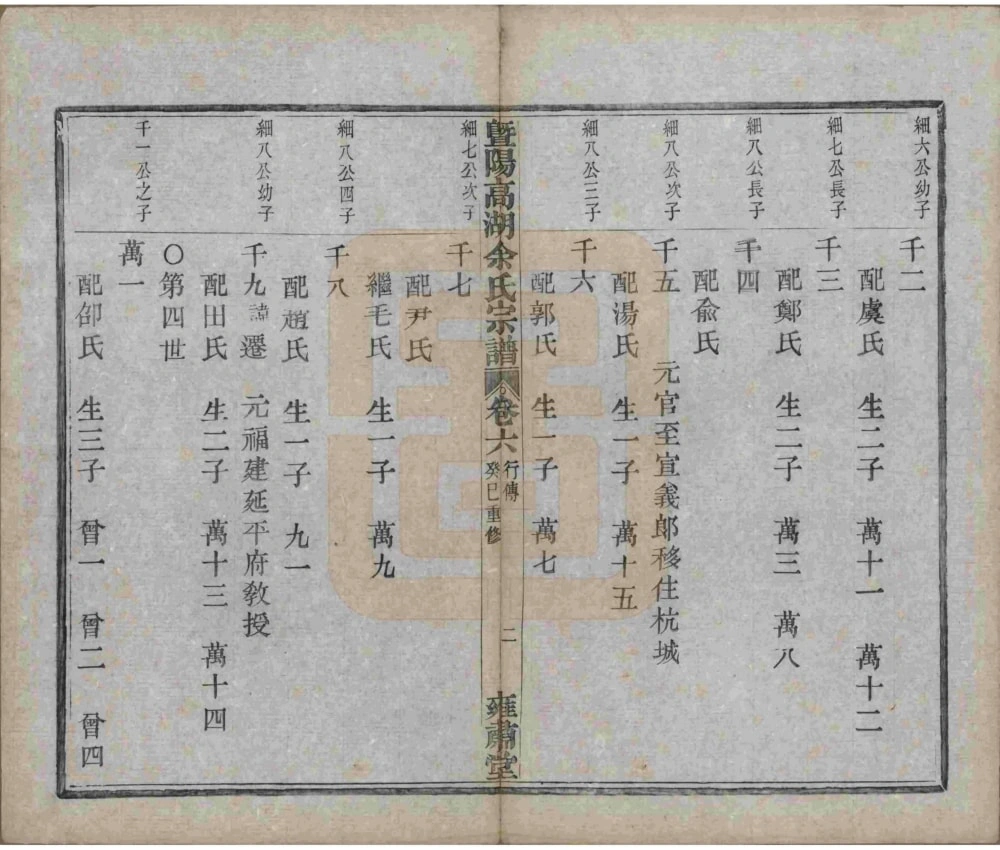 細六公幼子
千二
配虞氏 生二子 萬十一 萬十二
細七公長子
千三
配鄭氏 生二子 萬三 萬八
細八公長子
千四
配俞氏
細八公次子
千五 元官至宣義郎移住杭城
配湯氏 生一子 萬十五
細八公三子
千六
配郭氏 生一子 萬七
暨陽高湖余氏宗譜 卷六 行傳 癸巳重修 二 雍肅堂
細七公次子
千七
配尹氏
繼毛氏 生一子 萬九
細八公四子
千八
配趙氏 生一子 九一
細八公幼子
千九諱遷 元福建延平府敎授
配田氏 生二子 萬十三 萬十四
○第四世
千一公之子
萬一
配邵氏 生三子 曾一 曾二 曾四